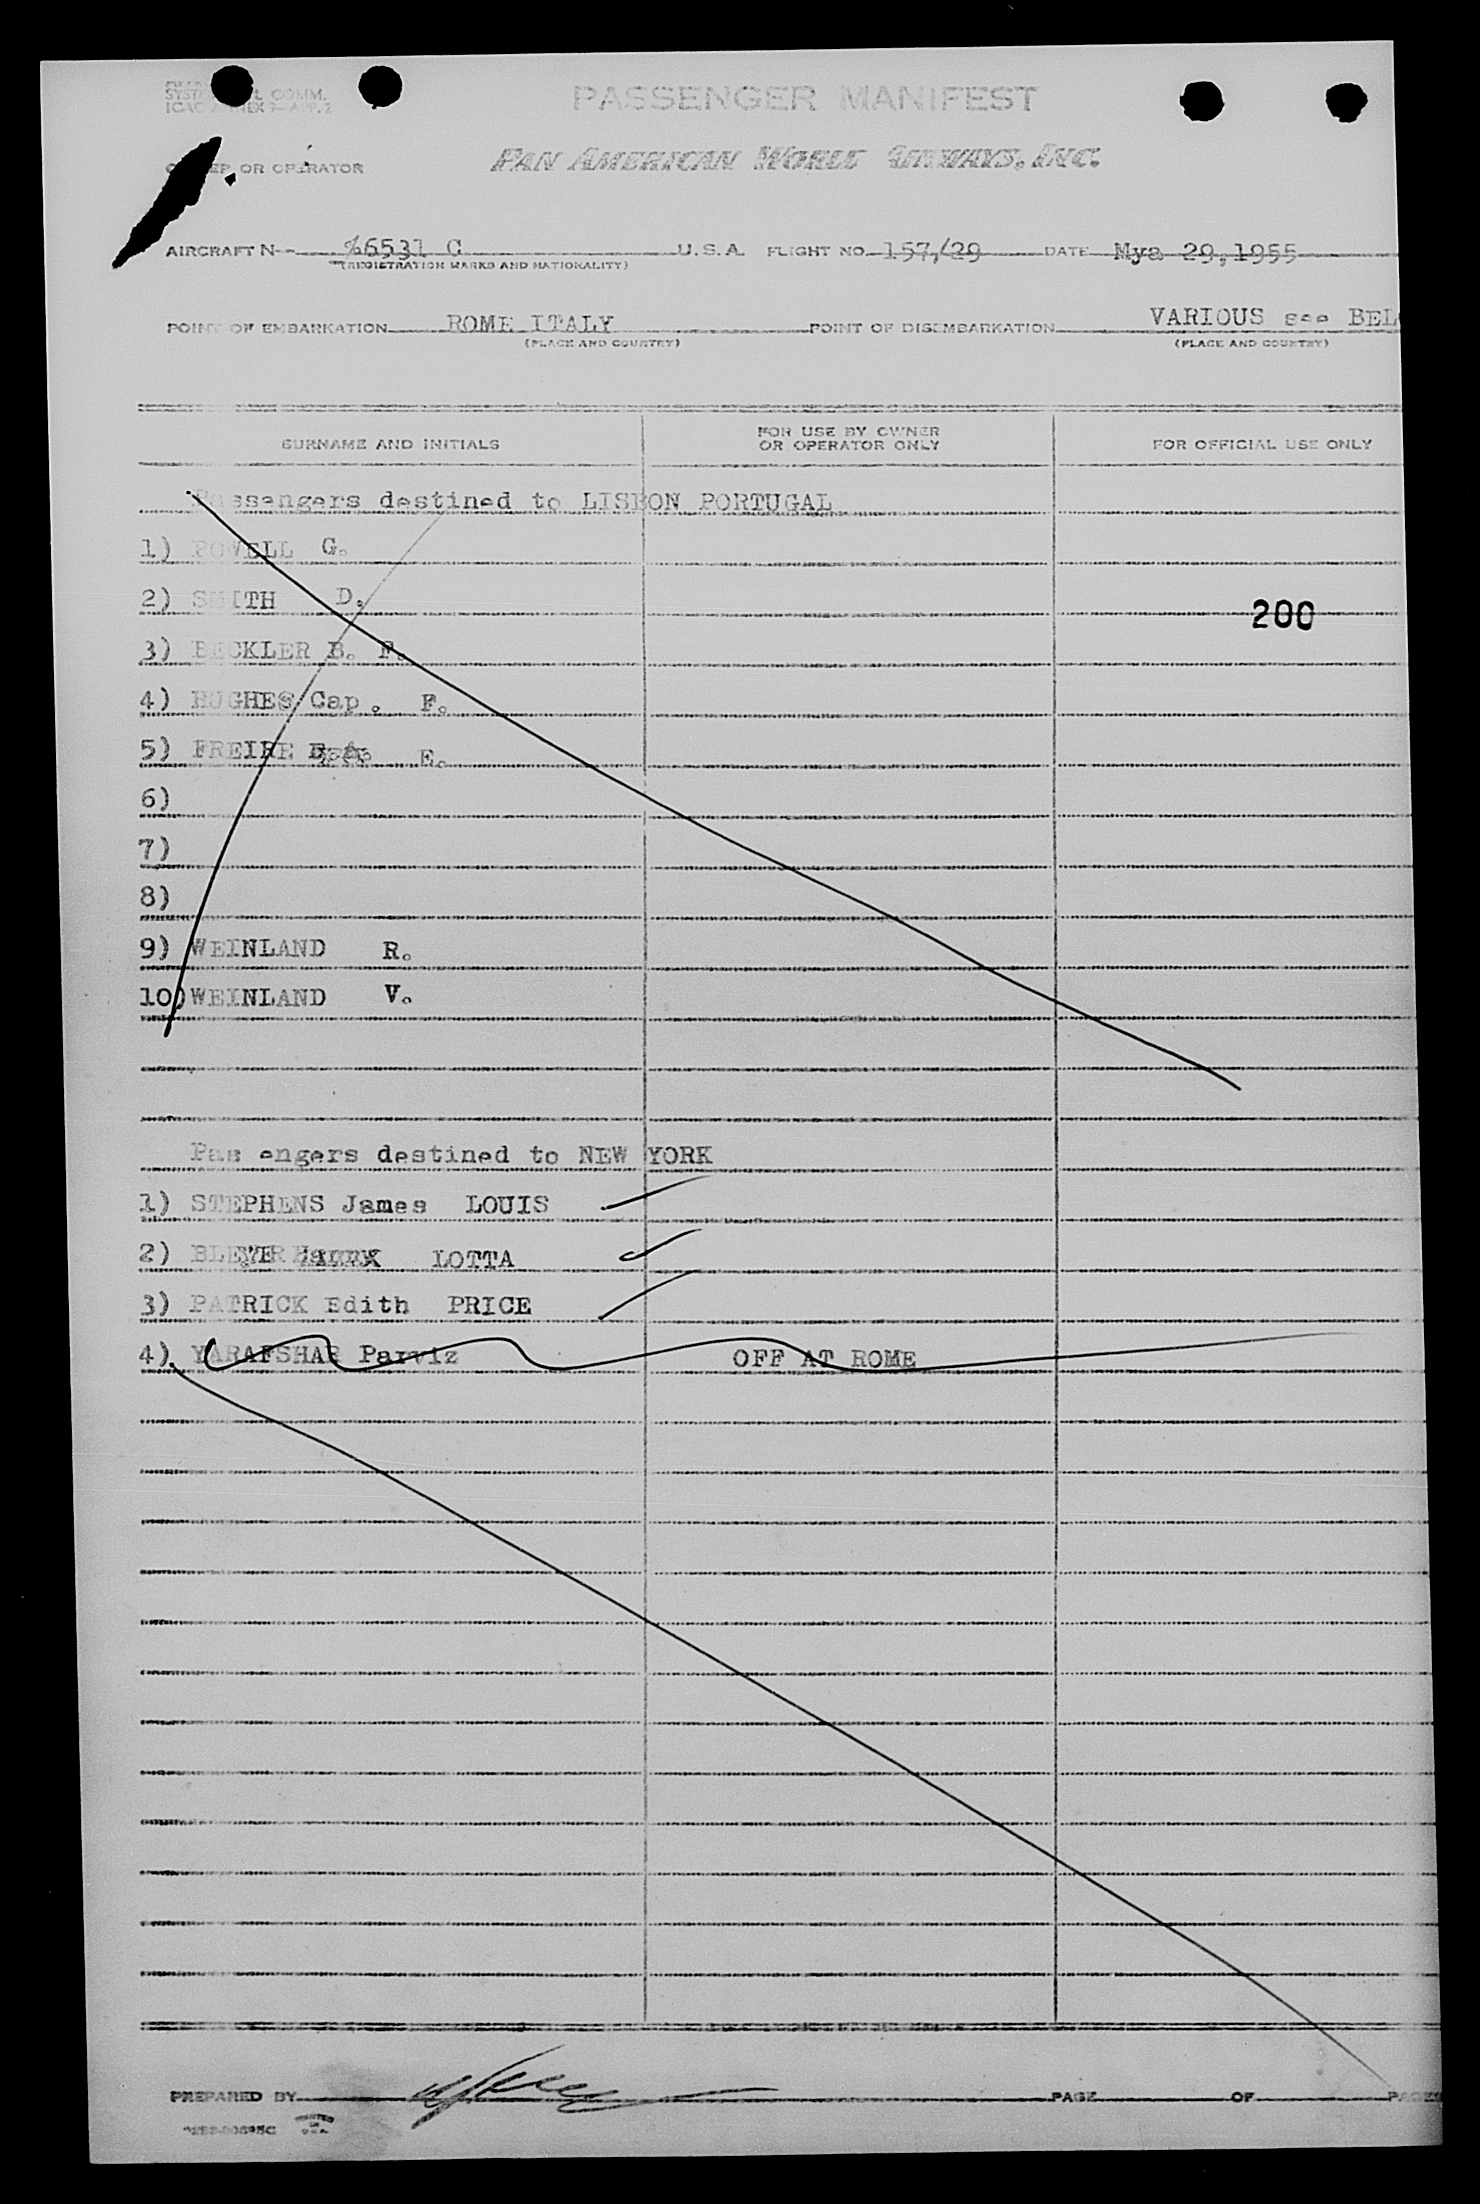 L COMM.
PASSENGER MANIFEST
OR OPERATOR
PAN AMERICAN WORLD AIRWAYS, INC.
AIRCRAFT N-- %6531 C U.S.A. FLIGHT NO. 157/29 DATE Mya 29,1955
(REGISTRATION MARKS AND NATIONALITY)
POINT OF EMBARKATION ROME ITALY POINT OF DISEMBARKATION VARIOUS see BEL
(PLACE AND COUNTRY) (PLACE AND COUNTRY)
SURNAME AND INITIALS FOR USE BY OWNER OR OPERATOR ONLY FOR OFFICIAL USE ONLY
Passengers destined to LISBON PORTUGAL
1) POWELL G.
2) SMITH D. 200
3) BECKLER B. F.
4) HUGHES Cap. F.
5) FREIRE E.
6)
7)
8)
9) WEINLAND R.
10) WEINLAND V.
Pas engers destined to NEW YORK
1) STEPHENS James LOUIS
2) LOTTA
3) PATRICK Edith PRICE
4) YARAFSHAR Parviz OFF AT ROME
PREPARED BY PAGE OF PAGES